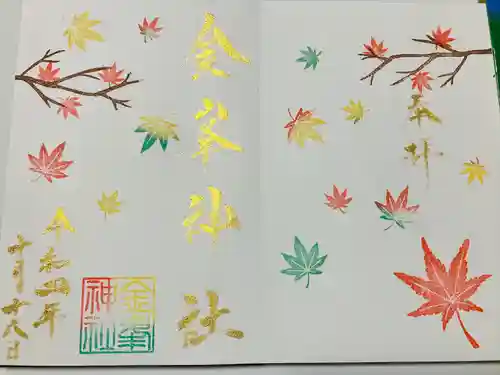 奉拝
金峯神社
金峯
神社
令和四年
十月廿八日